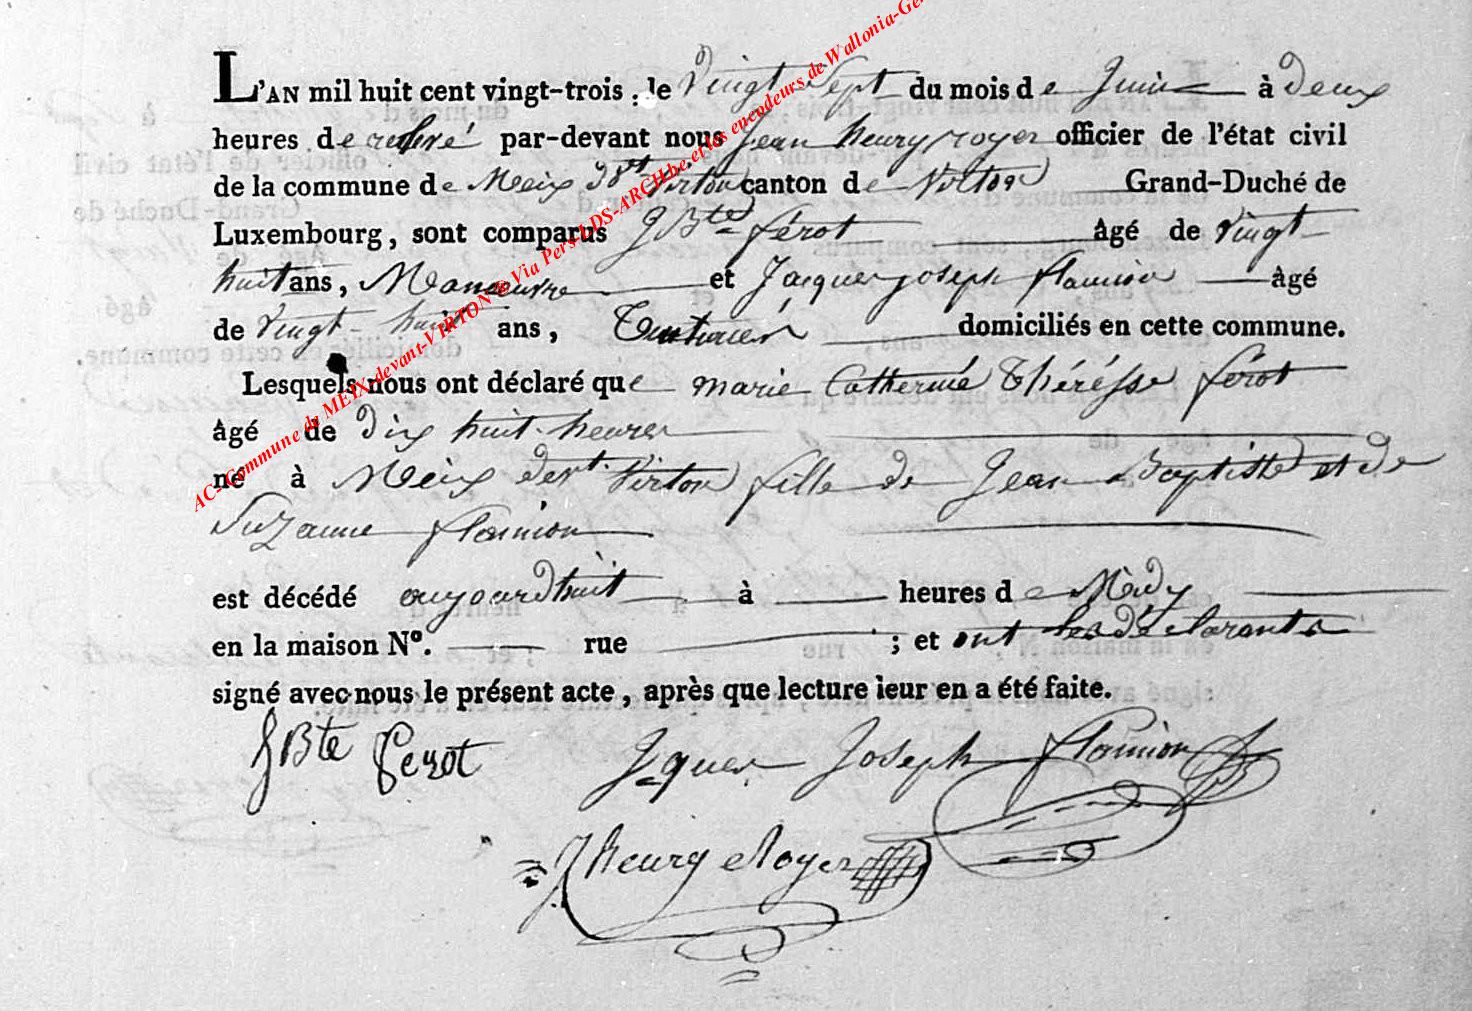 L'AN mil huit cent vingt-trois, le vingt Sept du mois de Juin à deux
heures de relevé par-devant nous Jean henry royer officier de l'état civil
de la commune de Meix Dvt Virton canton de Virton Grand-Duché de
Luxembourg, sont comparus J Bte ferot âgé de vingt
huit ans, Manoeuvre et Jacques joseph flamion âgé
de vingt-huit ans, Tinturier domiciliés en cette commune.
Lesquels nous ont déclaré que marie Catherine Thérèsse ferot
âgé de dix huit heures
né à Meix devt Virton fille de Jean Baptiste et de
Suzanne flamion
est décédé aujourdhuit à heures de Midy
en la maison N°. rue ; et ont les déclarants
signé avec nous le présent acte, après que lecture leur en a été faite.
J Bte Ferot Jacques Joseph flamion
J henry Royer
AC-Commune de MEIX-devant-VIRTON Via Pers-LDS-ARCH.be et les encodeurs de Wallonia-Ge